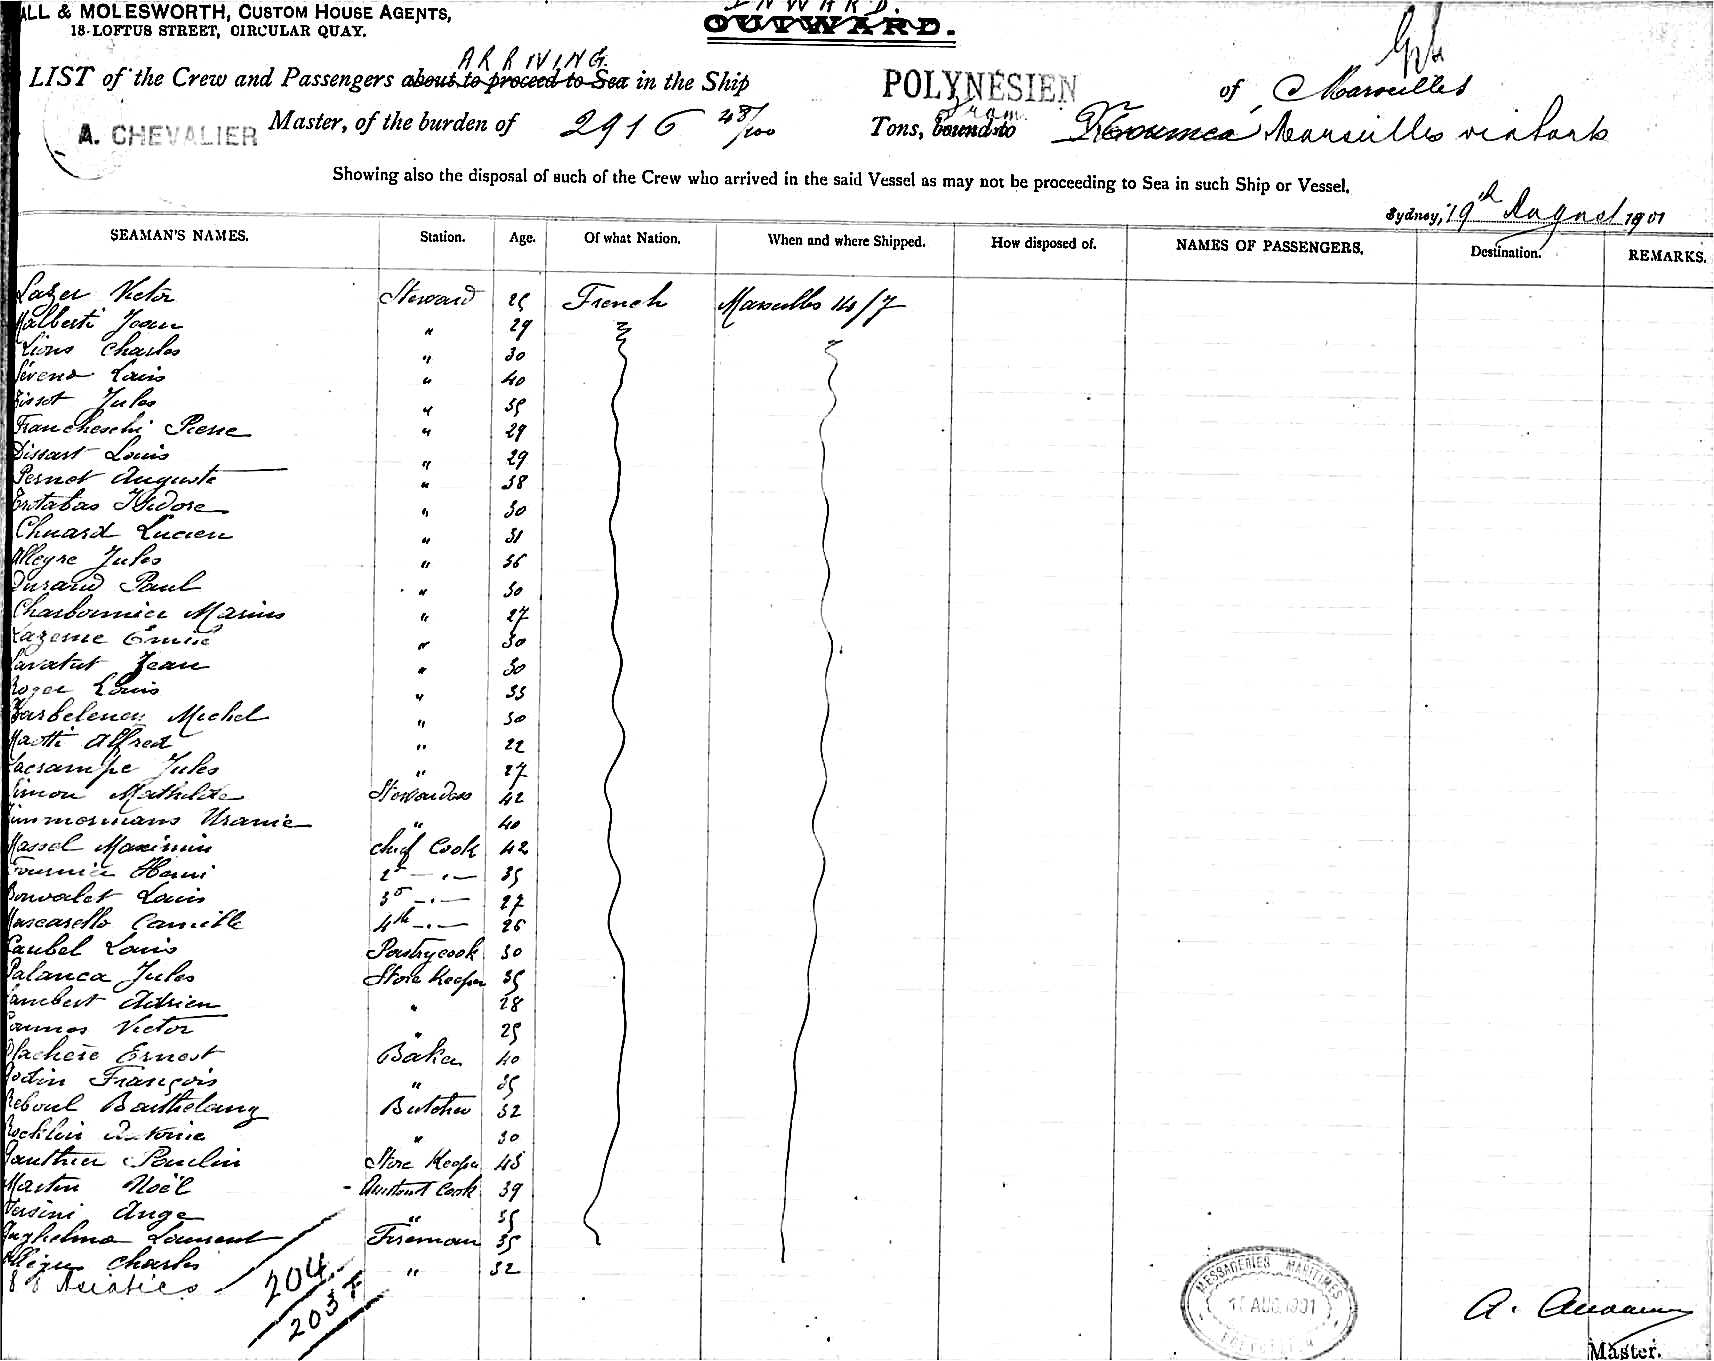 ALL & MOLESWORTH, CUSTOM HOUSE AGENTS,
18 LOFTUS STREET, CIRCULAR QUAY.
INWARD.
OUTWARD.
ARRIVING.
LIST of the Crew and Passengers about to proceed to Sea in the Ship POLYNÉSIEN of Marseilles
A. CHEVALIER Master, of the burden of 2916 48/100 Tons, bound to from Noumea Marseilles via Ports
Showing also the disposal of such of the Crew who arrived in the said Vessel as may not be proceeding to Sea in such Ship or Vessel.
Sydney, 19th August 1901
SEAMAN'S NAMES. Station. Age. Of what Nation. When and where Shipped. How disposed of. NAMES OF PASSENGERS. Destination. REMARKS.
Lazer Victor Steward 25 French Marseilles 14/7
Malberti Jean " 29
Lions Charles " 30
Sirena Louis " 40
Jules " 35
Francheschi Pierre " 29
Dissart Louis " 29
Pernot Auguste " 38
Isidore " 30
Chuard Lucien " 31
Allegre Jules " 36
Durand Paul " 30
Charbonnier Marius " 27
Lazeme Emile " 30
Lavatut Jean " 30
Roger Louis " 33
Michel " 30
Maotti Alfred " 22
Lacrampe Jules " 27
Simon Mathilde Stewardess 42
Zimmermans Uranie " 40
Massel Maximin chief Cook 42
Fournier Henri 2d — " — 35
Bonvalet Louis 3d — " — 27
Mascarello Camille 4th — " — 26
Caubel Louis Pastrycook 30
Palanca Jules Store Keeper 35
Lambert Adrien " 28
Victor " 25
Ernest Baker 40
Godin François " 35
Reboul Barthelemy Butcher 32
Rocklin Antoine " 30
Gauthier Paulin Store Keeper 45
Martin Noël Assistant Cook 39
Versini Ange " 35
Guglielmo Laurent Fireman 35
Charles " 32
88 Asiatics
204
203
MESSAGERIES MARITIMES
AUG. 1901
A.
Master.